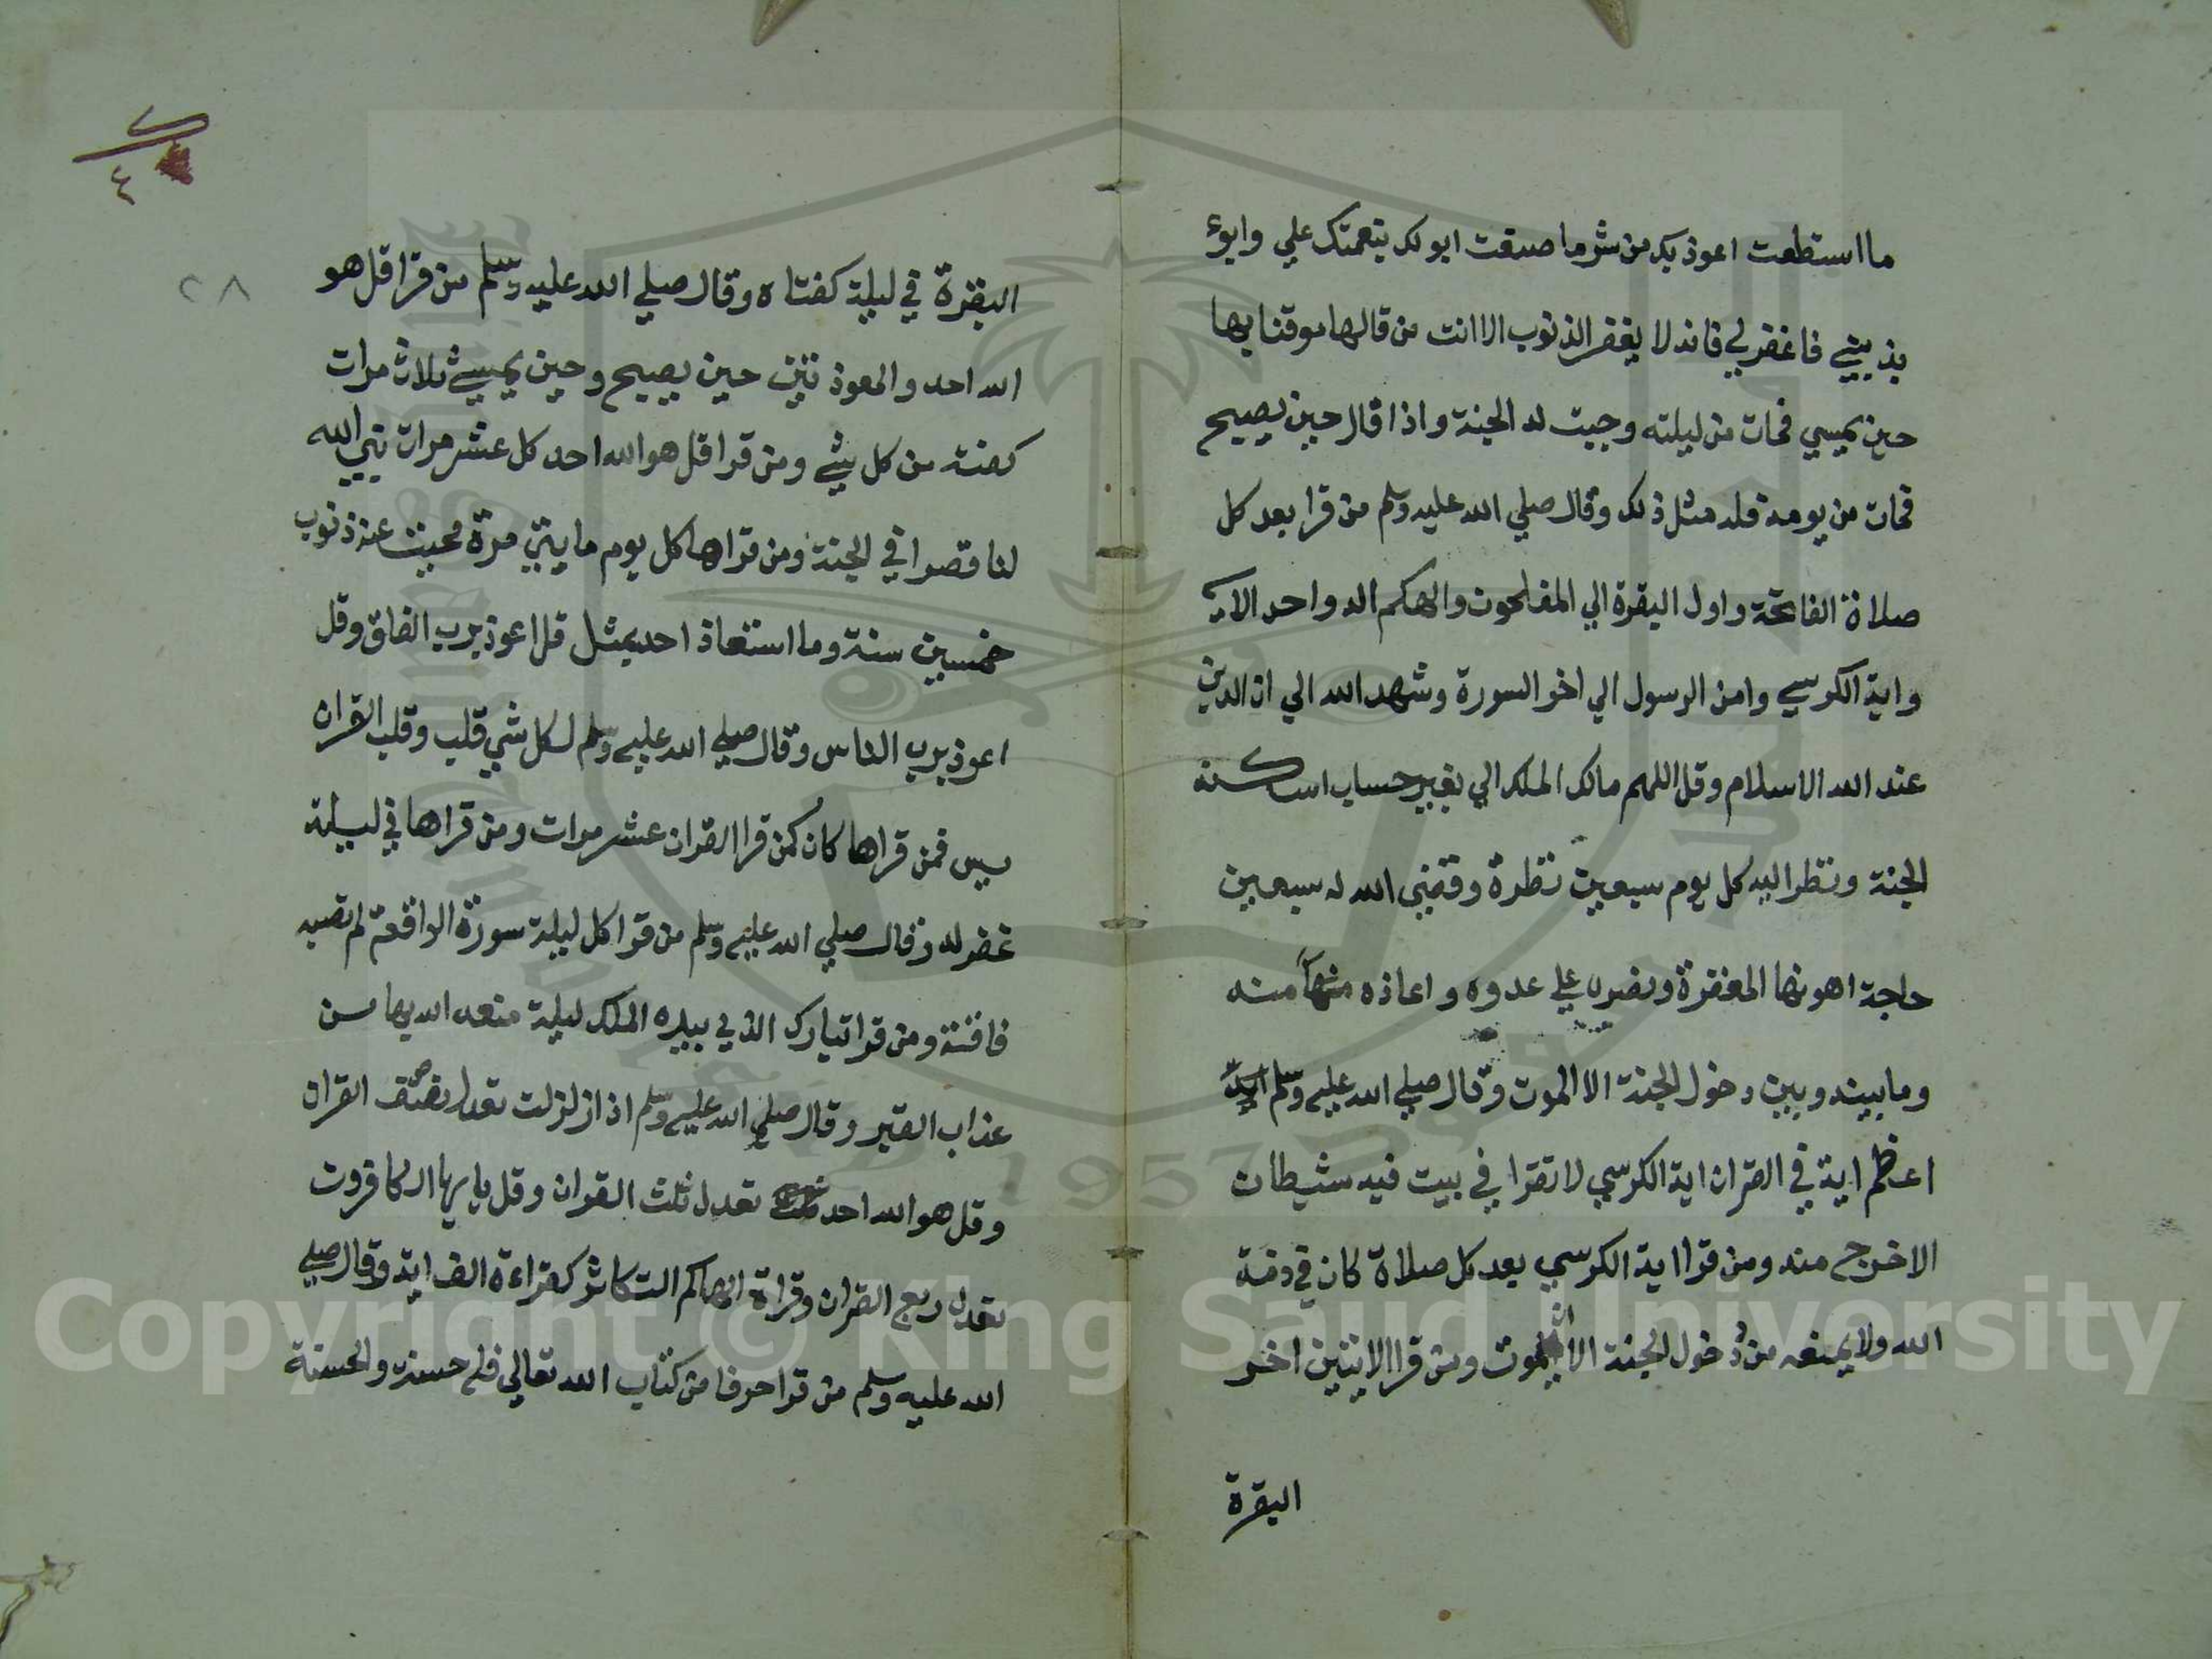 ما استطعت اعوذ بك من شر ما صنعت ابو لك بنعمتك علي وابوء
بذنبي فاغفر لي فانه لا يغفر الذنوب الا انت من قالها موقنا بها
حين يمسي فمات من ليلته وجبت له الجنة واذا قال حين يصبح
فمات من يومه فله مثل ذلك وقال صلي الله عليه وسلم من قرا بعد كل
صلاة الفاتحة واول البقرة الي المفلحون والهكم اله واحد الاية
واية الكرسي وامن الرسول الي اخر السورة وشهد الله الي ان الدين
عند الله الاسلام وقل اللهم مالك الملك الي بغير حساب اسكنه
الجنة ونظر اليه كل يوم سبعين نظرة وقضي الله له سبعين
حاجة اهونها المغفرة ونصره علي عدوه واعاذه منه
وما بينه وبين دخول الجنة الا الموت وقال صلي الله عليه وسلم
اعظم اية في القران اية الكرسي لا تقرا في بيت فيه شيطان
الا خرج منه ومن قرا اية الكرسي بعد كل صلاة كان في ذمة
الله ولا يمنعه من دخول الجنة الا الموت ومن قرا الايتين اخر
البقرة
٢٨
٤
البقرة في ليلة كفتاه وقال صلي الله عليه وسلم من قرا قل هو
الله احد والمعوذتين حين يصبح وحين يمسي ثلاث مرات
كفته من كل شي ومن قرا قل هو الله احد كل عشر مرات بني الله
لنا قصرا في الجنة ومن قراها كل يوم مايتي مرة محيت عنه ذنوب
خمسين سنة وما استعاذ احد بمثل قل اعوذ برب الفلق وقل
اعوذ برب الناس وقال صلي الله عليه وسلم لكل شي قلب وقلب القران
يس فمن قراها كان كمن قرا القران عشر مرات ومن قراها في ليلة
غفر له وقال صلي الله عليه وسلم من قرا كل ليلة سورة الواقعة لم تصبه
فاقة ومن قرا تبارك الذي بيده الملك ليلة منعه الله بها من
عذاب القبر وقال صلي الله عليه وسلم اذا زلزلت تعدل نصف القران
وقل هو الله احد تعدل ثلث القران وقل يا يها الكافرون
تعدل ربع القران وقراة الهاكم التكاثر كقراءة الف اية وقال صلي
الله عليه وسلم من قرا حرفا من كتاب الله تعالي فله حسنة والحسنة
Copyright © King Saud University
1957